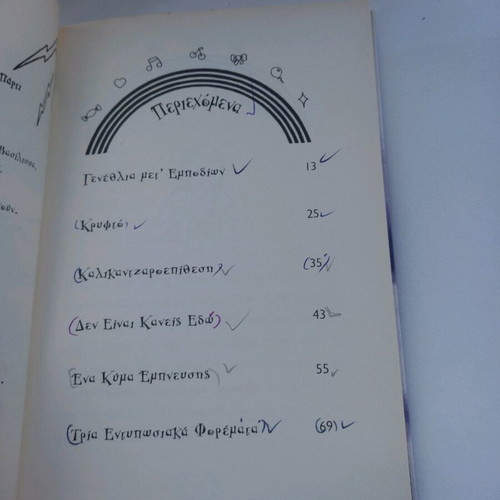 Περιεχόμενα
Γενέθλια μετ' Εμποδίων 13
Κρυφτό 25
Καλικαντζαροεπίθεση 35
Δεν Είναι Κανείς Εδώ 43
Ένα Κύμα Έμπνευσης 55
Τρία Εντυπωσιακά Φορέματα 69